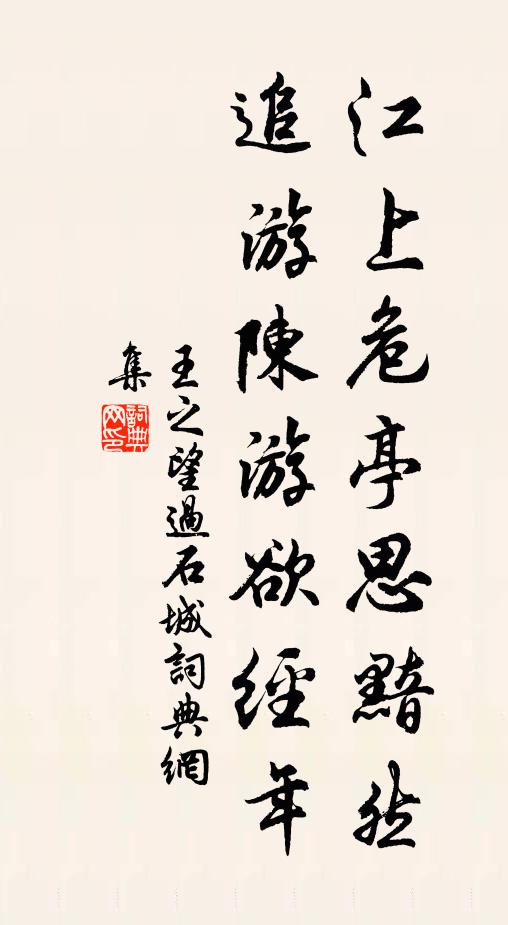 江上危亭思黯然
追游陳游欲經年
王之望過石城詞典網
集
詞典網印